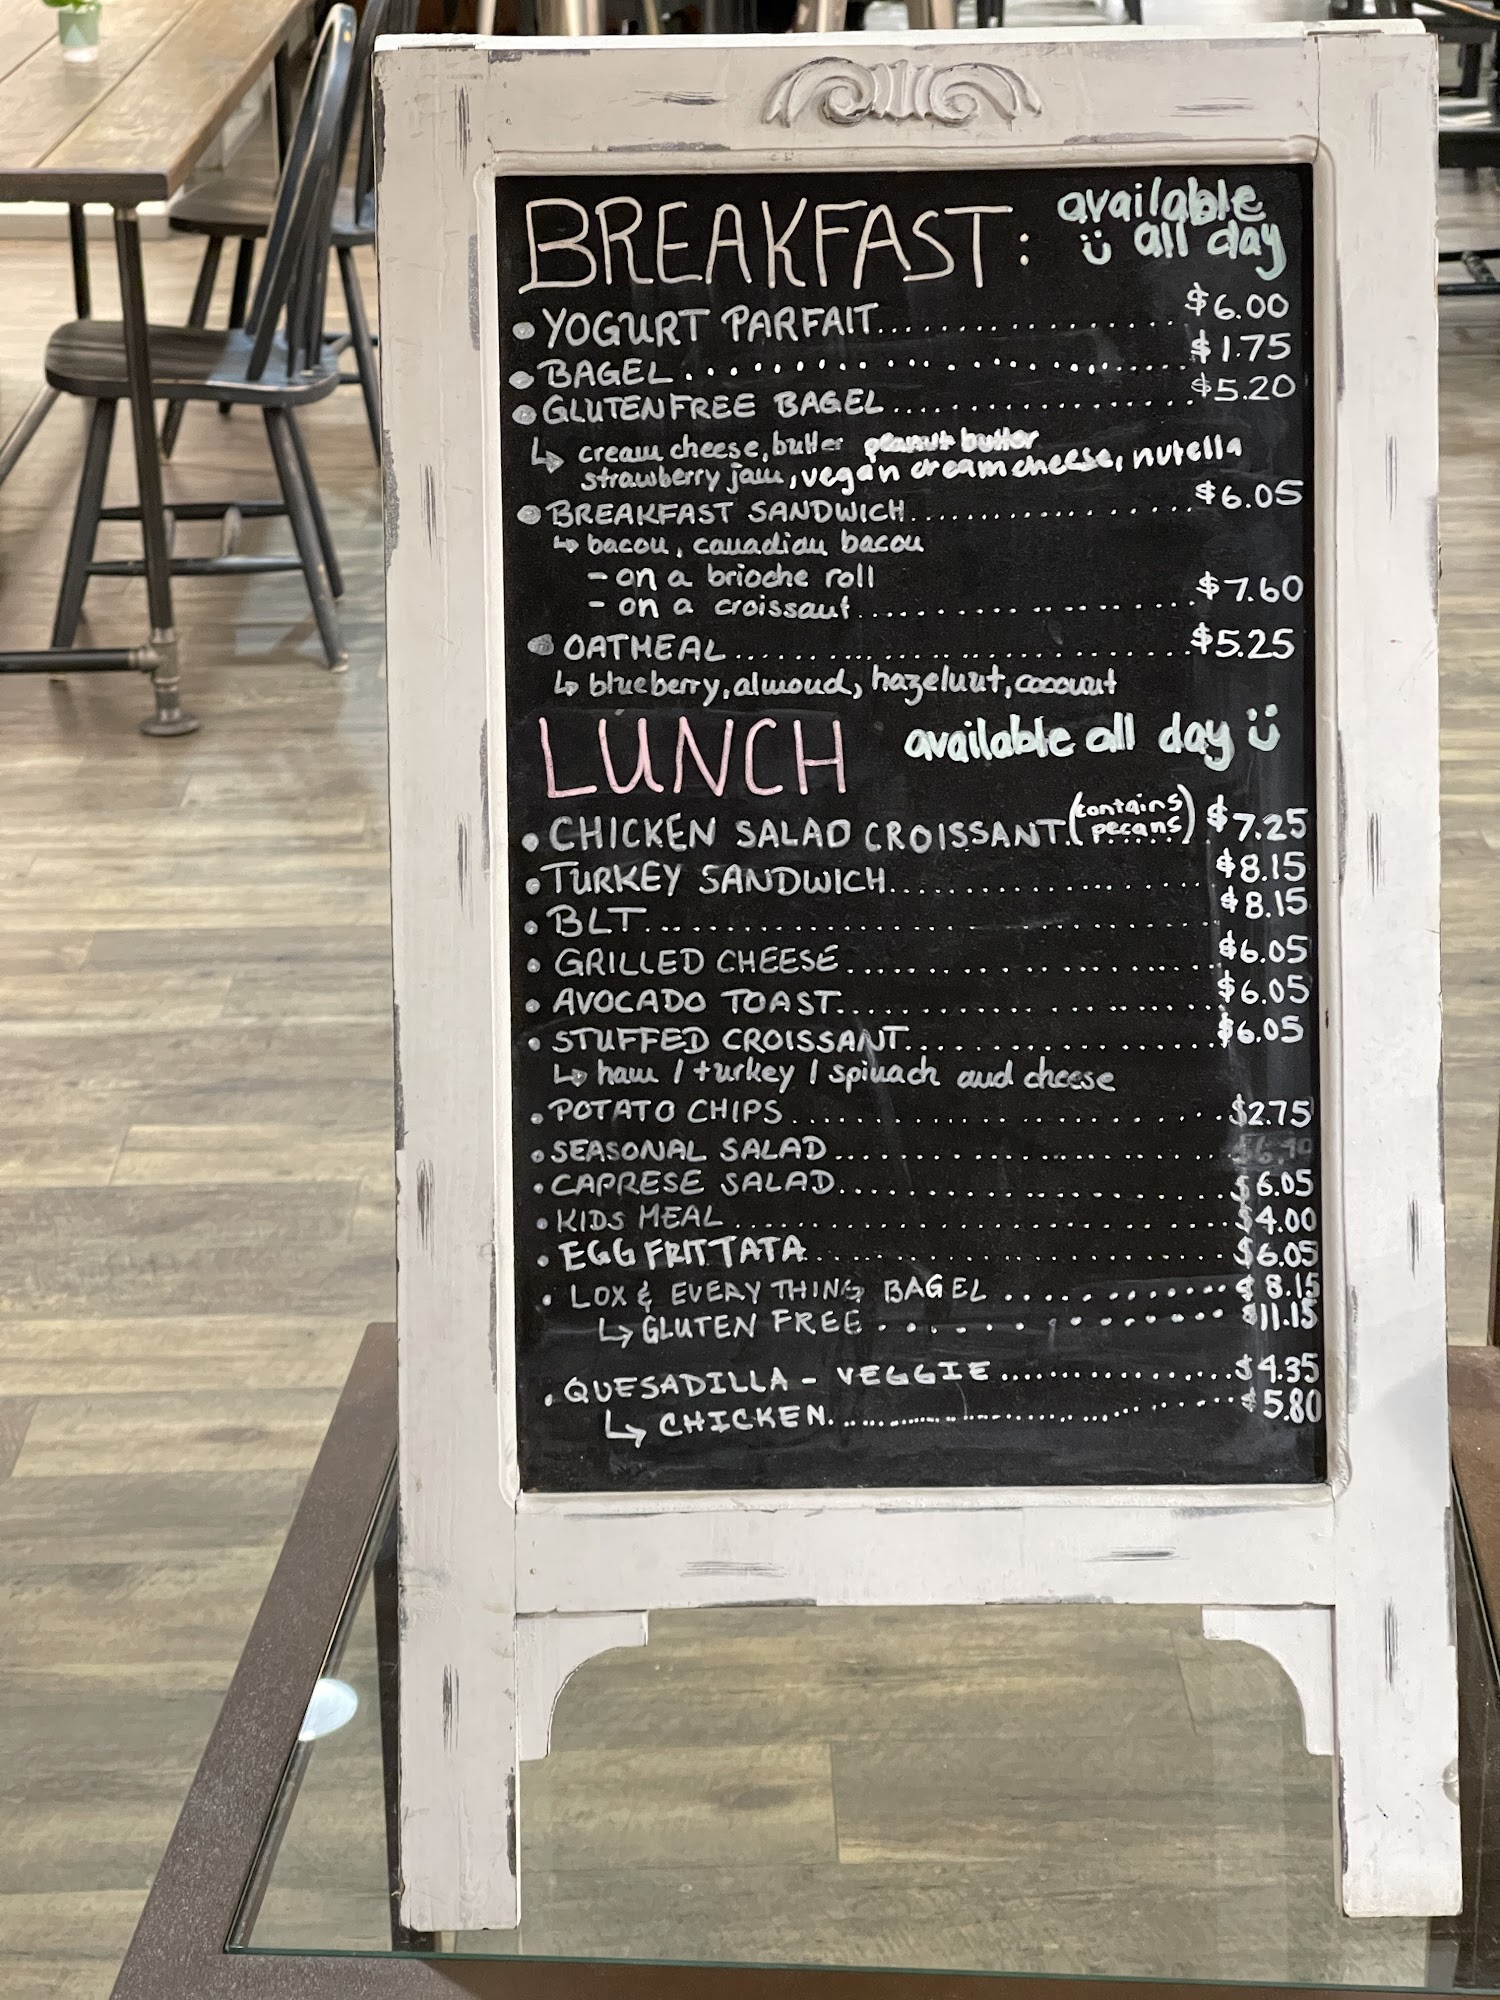 BREAKFAST: available
ü all day
• YOGURT PARFAIT.................. $6.00
• BAGEL.................. $1.75
• GLUTENFREE BAGEL.................. $5.20
↳ cream cheese, butter peanut butter
strawberry jam, vegan cream cheese, nutella
• BREAKFAST SANDWICH.................. $6.05
↳ bacon, canadian bacon
- on a brioche roll
- on a croissant.................. $7.60
• OATMEAL.................. $5.25
↳ blueberry, almond, hazelnut, coconut
LUNCH available all day ü
• CHICKEN SALAD CROISSANT (contains pecans) $7.25
• TURKEY SANDWICH.................. $8.15
• BLT.................. $8.15
• GRILLED CHEESE.................. $6.05
• AVOCADO TOAST.................. $6.05
• STUFFED CROISSANT.................. $6.05
↳ ham / turkey / spinach and cheese
• POTATO CHIPS.................. $2.75
• SEASONAL SALAD..................
• CAPRESE SALAD.................. $6.05
• KIDS MEAL.................. $4.00
• EGG FRITTATA.................. $6.05
• LOX & EVERYTHING BAGEL.................. $8.15
↳ GLUTEN FREE.................. $11.15
• QUESADILLA - VEGGIE.................. $4.35
↳ CHICKEN.................. $5.80